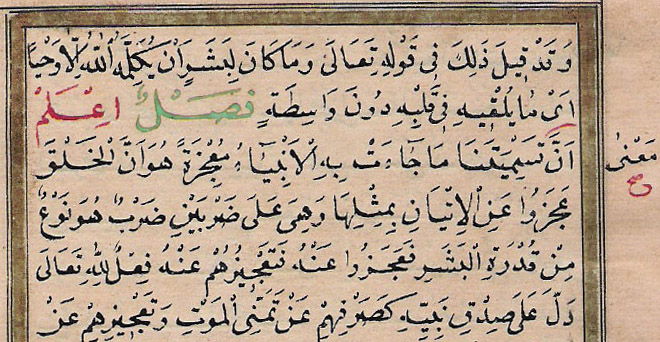 وَقَدْ قِيلَ ذَلِكَ فِى قَوْلِهِ تَعَالَى وَمَا كَانَ لِبَشَرٍ اَنْ يُكَلِّمَهُ اللّٰهُ اِلَّا وَحْيًا
اَىْ مَا يُلْقِيهِ فِى قَلْبِهِ دُونَ وَاسِطَةٍ فَصْلٌ اِعْلَمْ
اَنَّ تَسْمِيَتَنَا مَا جَاءَتْ بِهِ الْاَنْبِيَاءُ مُعْجِزَةً هُوَ اَنَّ الْخَلْقَ
عَجَزُوا عَنِ الْاِتْيَانِ بِمِثْلِهَا وَهِىَ عَلَى ضَرْبَيْنِ ضَرْبٌ هُوَ نَوْعٌ
مِنْ قُدْرَةِ الْبَشَرِ فَعَجَزُوا عَنْهُ فَتَعْجِيزُهُمْ عَنْهُ فِعْلٌ لِلّٰهِ تَعَالَى
دَلَّ عَلَى صِدْقِ نَبِيِّهِ كَصَرْفِهِمْ عَنْ تَمَنِّى الْمَوْتِ وَتَعْجِيزِهِمْ عَنْ
مَعْنَى